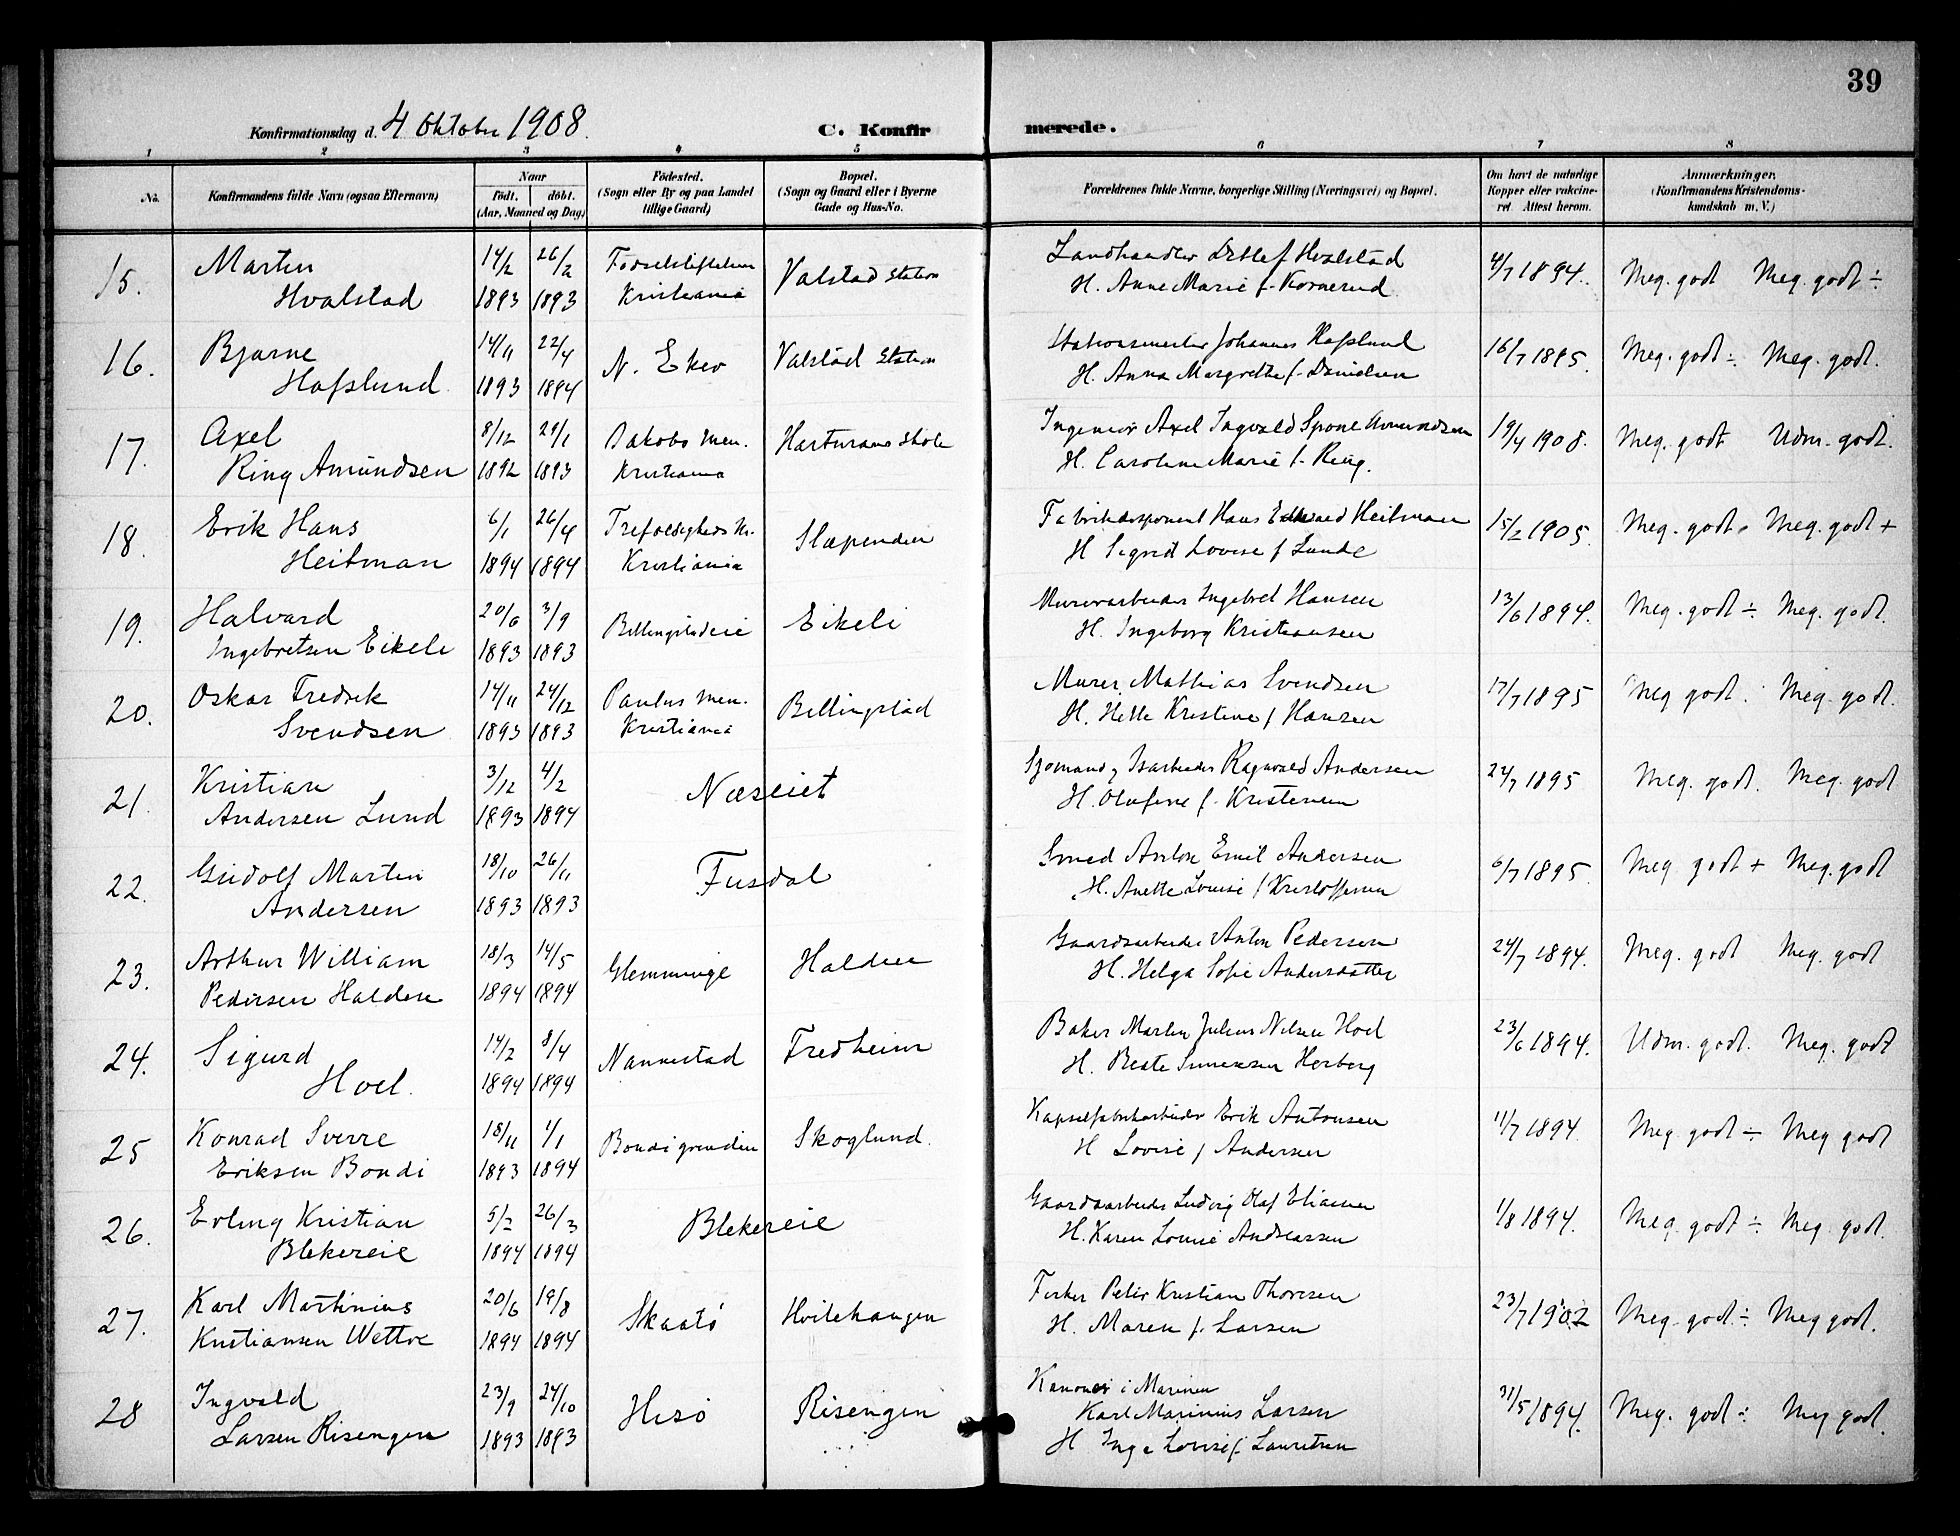 39
Konfirmationsdag d. 4 Oktober 1908.
C. Konfirmerede.
1 2 3 4 5 6 7 8
No.
Konfirmandens fulde Navn (ogsaa Efternavn)
Naar
Født. døbt.
(Aar, Maaned og Dag)
Fødested.
(Sogn eller By og paa Landet
tillige Gaard)
Bopæl.
(Sogn og Gaard eller i Byerne
Gade og Hus-No.
Forældrenes fulde Navne, borgerlige Stilling (Næringsvei) og Bopæl.
Om havt de naturlige
Kopper eller vakcine-
ret. Attest herom.
Anmærkninger.
(Konfirmandens Kristendoms-
kundskab m. V.)
15. Martin 14/2 26/2 Fødselsstiftelsen Valstad Station Landhandler Detlef Hvalstad 4/7 1894. Meg. godt Meg. godt ÷
Hvalstad 1893 1893 Kristiania H. Anne Marie f. Kornerud
16. Bjarne 14/11 22/4 N. Eker Valstad Station Stationsmester Johannes Hafslund 16/7 1895. Meg. godt ÷ Meg. godt.
Hafslund 1893 1894 H. Anna Margrethe f. Danielsen
17. Axel 8/12 29/1 Jakobs Men. Ingeniør Axel Ingvald Spone Amundsen 19/4 1908. Meg. godt Udm. godt.
Ring Amundsen 1892 1893 Kristiania H. Caroline Marie f. Ring.
18. Erik Hans 6/1 26/4 Trefoldigheds M. Slæpenden Hans Edward Heitman 15/2 1905. Meg. godt. Meg. godt +
Heitman 1894 1894 Kristiania H Sigrid Lovise f Lunde
19. Halvard 20/6 3/9 Billingstadeie Eikeli Murerarbeider Ingebret Hansen 13/6 1894. Meg. godt ÷ Meg. godt.
Ingebretsen Eikeli 1893 1893 H. Ingeborg Kristiansen
20. Oskar Fredrik 14/11 24/12 Paulus Men. Billingstad Murer Mathias Svendsen 17/7 1895 Meg godt. Meg. godt.
Svendsen 1893 1893 Kristiania H. Helle Kristine f Hansen
21. Kristian 3/12 4/2 Næseiet Sjømand, Isarbeider Ragnvald Andersen 24/7 1895 Meg. godt. Meg. godt
Andersen Lund 1893 1894 H. Olufine f. Kristensen
22. Gudolf Martin 18/10 26/11 Fusdal Smed Anton Emil Andersen 6/7 1895. Meg godt + Meg. godt
Andersen 1893 1893 H. Anette Louise f Kristoffersen
23. Arthur William 18/3 14/5 Glemminge Halden Gaardsarbeider Anton Pedersen 24/7 1894. Meg. godt Meg. godt
Pedersen Halden 1894 1894 H. Helga Sofie Andersdatter
24. Sigurd 14/2 8/4 Nannestad Fredheim Baker Martin Julius Nilsen Hoel 23/6 1894. Udm. godt. Meg. godt
Hoel. 1894 1894 H. Beate Simensen Herberg
25 Konrad Sverre 18/11 1/1 Bondigrenden Skoglund. Kapselfabrikarbeider Erik Antonsen 11/7 1894. Meg. godt ÷ Meg godt
Eriksen Bondi 1893 1894 H Lovise f Andersen
26. Erling Kristian 5/2 26/3 Blekereie Gaardsarbeider Ludvig Olaf Eliassen 1/8 1894. Meg. godt ÷ Meg. godt.
Blekereie 1894 1894 H. Karen Louise Andreassen
27. Karl Martinius 20/6 19/8 Skaatø Hvitehaugen Fisker Peter Kristian Thoresen 23/7 1902 Meg. godt ÷ Meg godt.
Kristiansen Wettre 1894 1894 H. Maren f. Larsen
28 Ingvald 23/9 24/10 Hisø Risengen Kanoner i Marinen 31/5 1894. Meg. godt ÷ Meg godt.
Larsen Risengen 1893 1893 Karl Marinius Larsen
H Inga Lovise f. Lauritsen